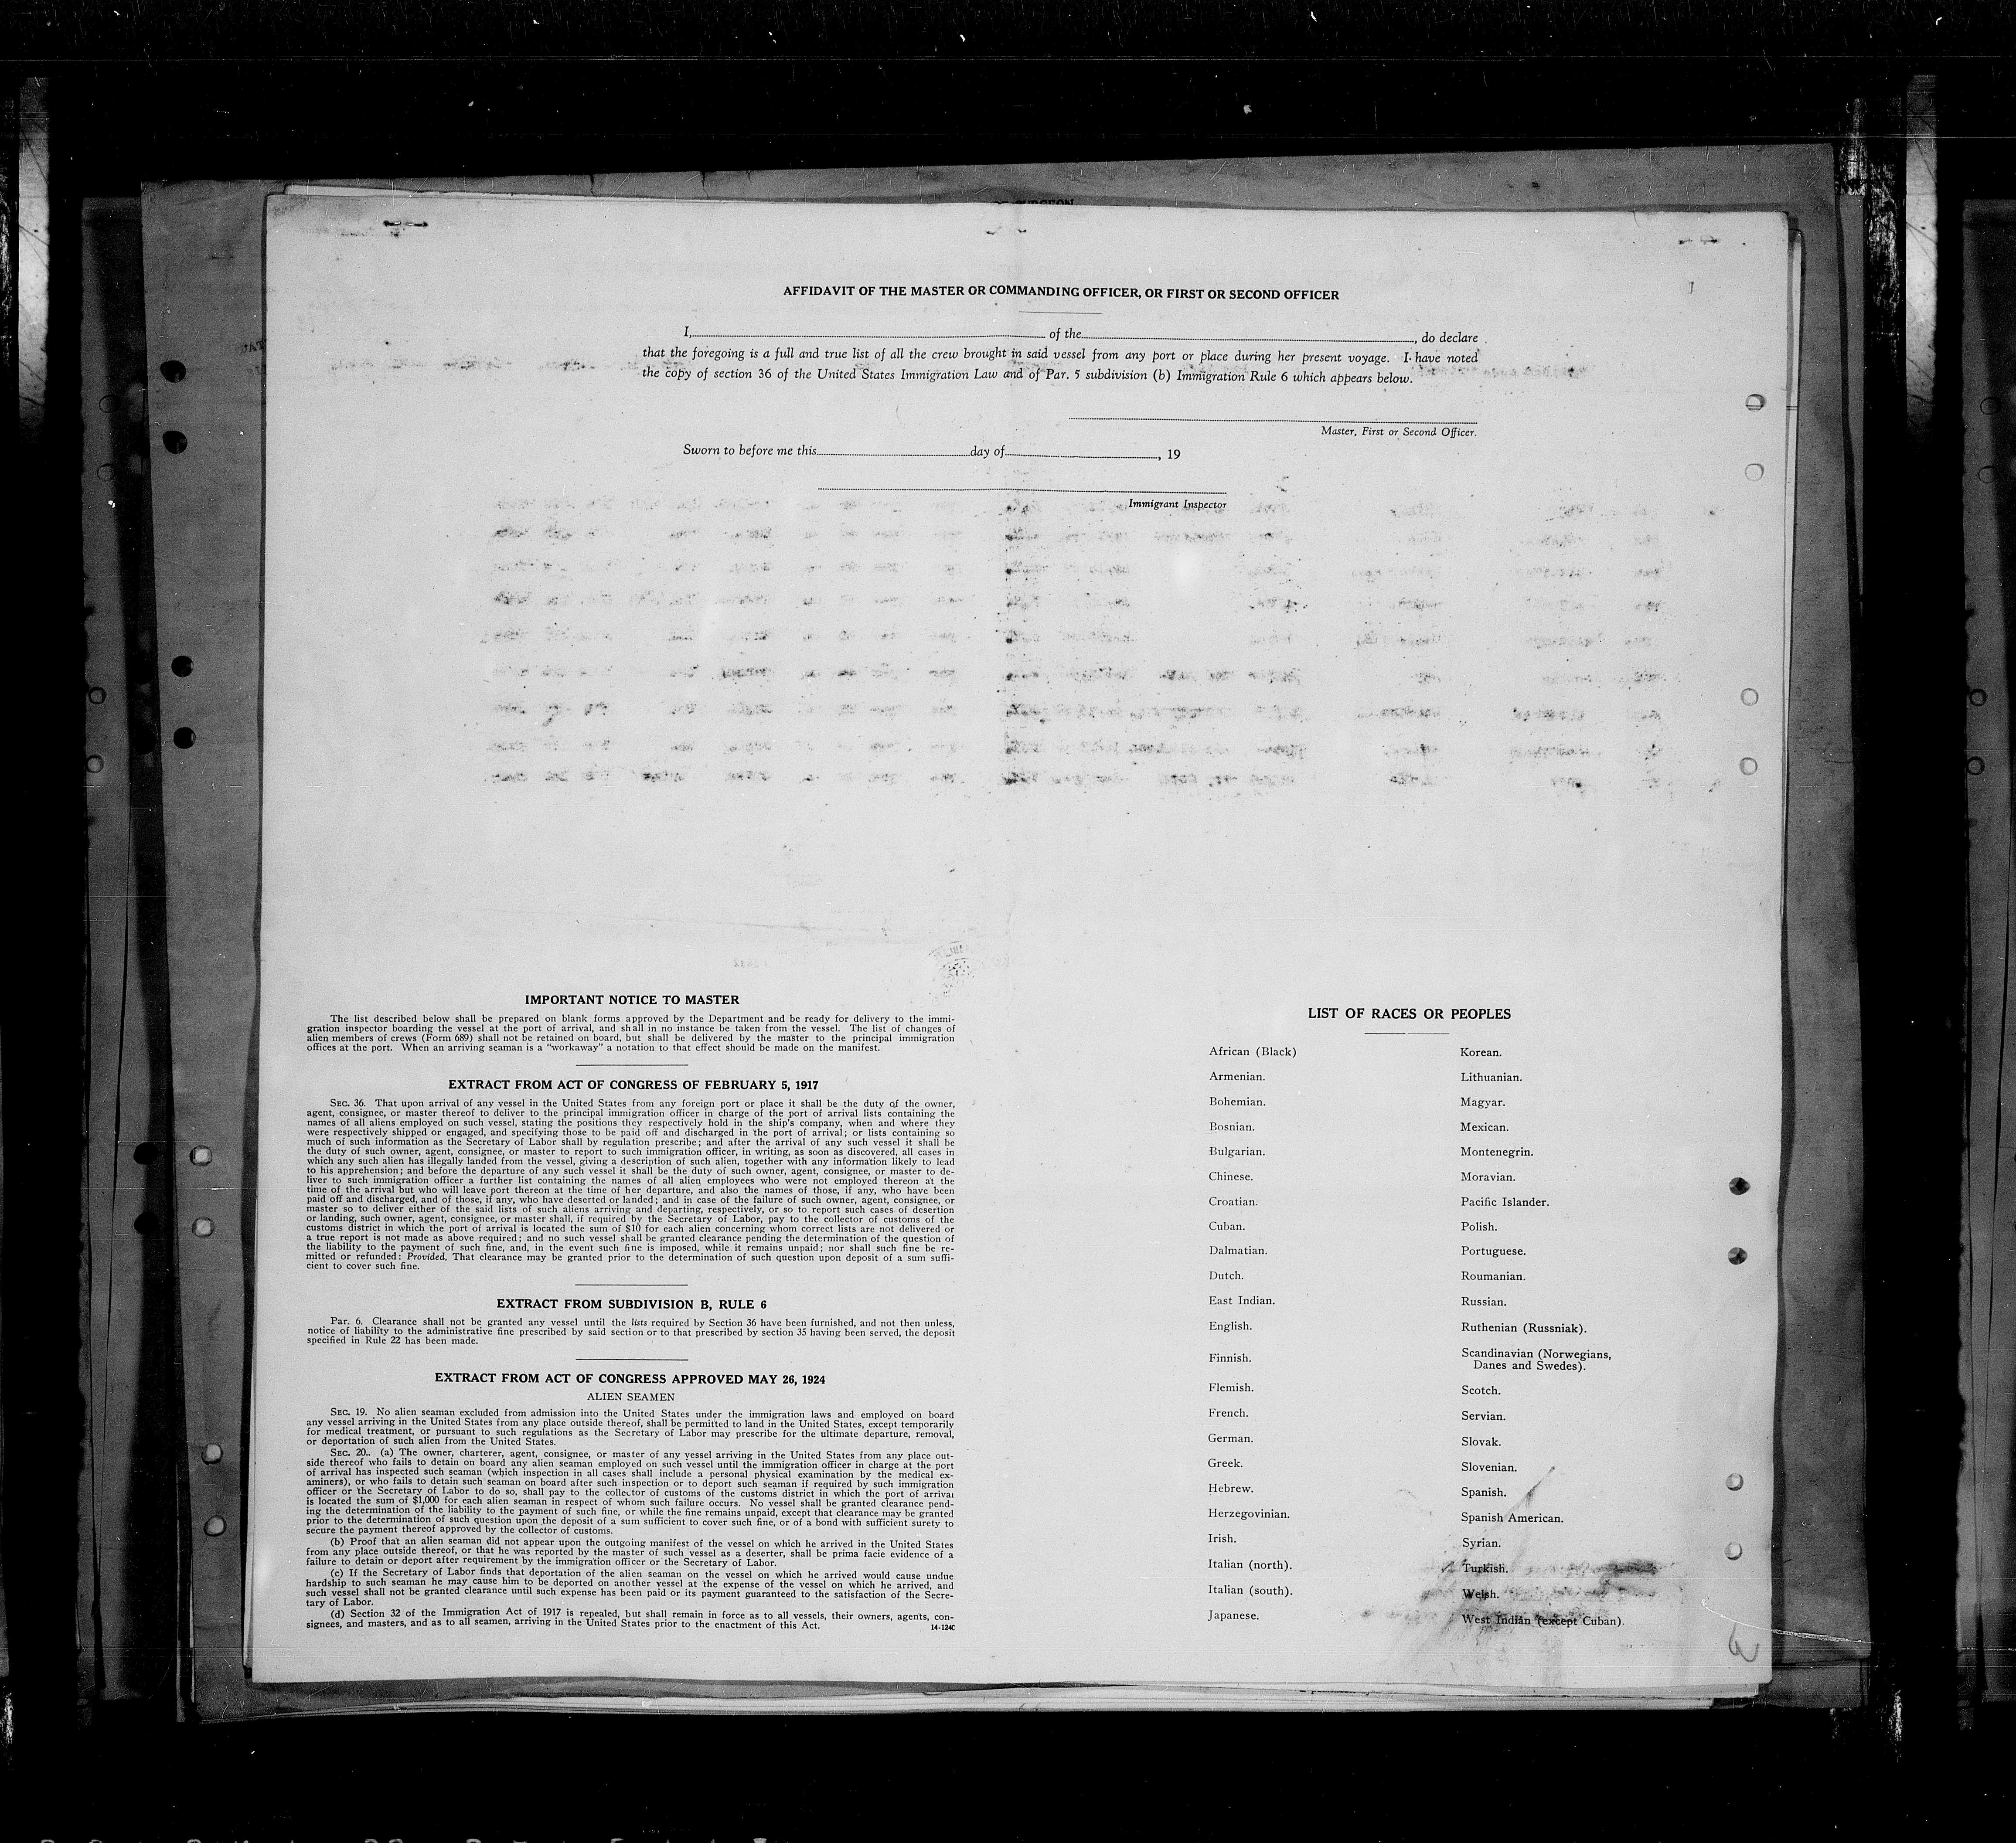 AFFIDAVIT OF THE MASTER OR COMMANDING OFFICER, OR FIRST OR SECOND OFFICER
I, of the , do declare
that the foregoing is a full and true list of all the crew brought in said vessel from any port or place during her present voyage. I have noted
the copy of section 36 of the United States Immigration Law and of Par. 5 subdivision (b) Immigration Rule 6 which appears below.
Master, First or Second Officer.
Sworn to before me this day of , 19
Immigrant Inspector
IMPORTANT NOTICE TO MASTER
The list described below shall be prepared on blank forms approved by the Department and be ready for delivery to the immi-
gration inspector boarding the vessel at the port of arrival, and shall in no instance be taken from the vessel. The list of changes of
alien members of crews (Form 689) shall not be retained on board, but shall be delivered by the master to the principal immigration
offices at the port. When an arriving seaman is a "workaway" a notation to that effect should be made on the manifest.
EXTRACT FROM ACT OF CONGRESS OF FEBRUARY 5, 1917
SEC. 36. That upon arrival of any vessel in the United States from any foreign port or place it shall be the duty of the owner,
agent, consignee, or master thereof to deliver to the principal immigration officer in charge of the port of arrival lists containing the
names of all aliens employed on such vessel, stating the positions they respectively hold in the ship's company, when and where they
were respectively shipped or engaged, and specifying those to be paid off and discharged in the port of arrival; or lists containing so
much of such information as the Secretary of Labor shall by regulation prescribe; and after the arrival of any such vessel it shall be
the duty of such owner, agent, consignee, or master to report to such immigration officer, in writing, as soon as discovered, all cases in
which any such alien has illegally landed from the vessel, giving a description of such alien, together with any information likely to lead
to his apprehension; and before the departure of any such vessel it shall be the duty of such owner, agent, consignee, or master to de-
liver to such immigration officer a further list containing the names of all alien employees who were not employed thereon at the
time of the arrival but who will leave port thereon at the time of her departure, and also the names of those, if any, who have been
paid off and discharged, and of those, if any, who have deserted or landed; and in case of the failure of such owner, agent, consignee, or
master so to deliver either of the said lists of such aliens arriving and departing, respectively, or so to report such cases of desertion
or landing, such owner, agent, consignee, or master shall, if required by the Secretary of Labor, pay to the collector of customs of the
customs district in which the port of arrival is located the sum of $10 for each alien concerning whom correct lists are not delivered or
a true report is not made as above required; and no such vessel shall be granted clearance pending the determination of the question of
the liability to the payment of such fine, and, in the event such fine is imposed, while it remains unpaid; nor shall such fine be re-
mitted or refunded: Provided, That clearance may be granted prior to the determination of such question upon deposit of a sum suffi-
cient to cover such fine.
EXTRACT FROM SUBDIVISION B, RULE 6
Par. 6. Clearance shall not be granted any vessel until the lists required by Section 36 have been furnished, and not then unless,
notice of liability to the administrative fine prescribed by said section or to that prescribed by section 35 having been served, the deposit
specified in Rule 22 has been made.
EXTRACT FROM ACT OF CONGRESS APPROVED MAY 26, 1924
ALIEN SEAMEN
SEC. 19. No alien seaman excluded from admission into the United States under the immigration laws and employed on board
any vessel arriving in the United States from any place outside thereof, shall be permitted to land in the United States, except temporarily
for medical treatment, or pursuant to such regulations as the Secretary of Labor may prescribe for the ultimate departure, removal,
or deportation of such alien from the United States.
SEC. 20.. (a) The owner, charterer, agent, consignee, or master of any vessel arriving in the United States from any place out-
side thereof who fails to detain on board any alien seaman employed on such vessel until the immigration officer in charge at the port
of arrival has inspected such seaman (which inspection in all cases shall include a personal physical examination by the medical ex-
aminers), or who fails to detain such seaman on board after such inspection or to deport such seaman if required by such immigration
officer or the Secretary of Labor to do so, shall pay to the collector of customs of the customs district in which the port of arrival
is located the sum of $1,000 for each alien seaman in respect of whom such failure occurs. No vessel shall be granted clearance pend-
ing the determination of the liability to the payment of such fine, or while the fine remains unpaid, except that clearance may be granted
prior to the determination of such question upon the deposit of a sum sufficient to cover such fine, or of a bond with sufficient surety to
secure the payment thereof approved by the collector of customs.
(b) Proof that an alien seaman did not appear upon the outgoing manifest of the vessel on which he arrived in the United States
from any place outside thereof, or that he was reported by the master of such vessel as a deserter, shall be prima facie evidence of a
failure to detain or deport after requirement by the immigration officer or the Secretary of Labor.
(c) If the Secretary of Labor finds that deportation of the alien seaman on the vessel on which he arrived would cause undue
hardship to such seaman he may cause him to be deported on another vessel at the expense of the vessel on which he arrived, and
such vessel shall not be granted clearance until such expense has been paid or its payment guaranteed to the satisfaction of the Secre-
tary of Labor.
(d) Section 32 of the Immigration Act of 1917 is repealed, but shall remain in force as to all vessels, their owners, agents, con-
signees, and masters, and as to all seamen, arriving in the United States prior to the enactment of this Act.
LIST OF RACES OR PEOPLES
African (Black)
Armenian.
Bohemian.
Bosnian.
Bulgarian.
Chinese.
Croatian.
Cuban.
Dalmatian.
Dutch.
East Indian.
English.
Finnish.
Flemish.
French.
German.
Greek.
Hebrew.
Herzegovinian.
Irish.
Italian (north).
Italian (south).
Japanese.
Korean.
Lithuanian.
Magyar.
Mexican.
Montenegrin.
Moravian.
Pacific Islander.
Polish.
Portuguese.
Roumanian.
Russian.
Ruthenian (Russniak).
Scandinavian (Norwegians,
Danes and Swedes).
Scotch.
Servian.
Slovak.
Slovenian.
Spanish.
Spanish American.
Syrian.
Turkish.
Welsh.
West Indian (except Cuban).